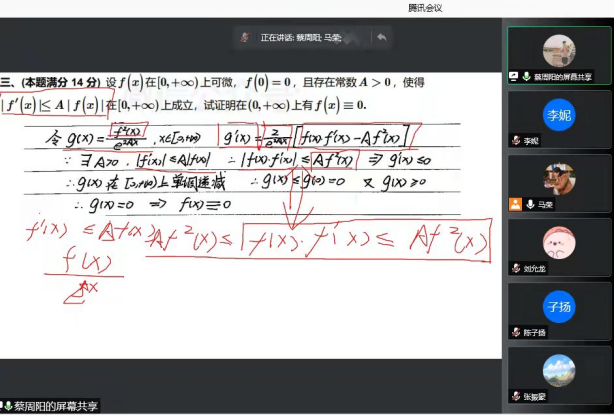 腾讯会议
正在讲话: 蔡周阳; 马荣;
三、(本题满分 14 分) 设 f(x) 在 [0,+∞) 上可微, f(0)=0, 且存在常数 A>0, 使得
|f′(x)|≤A|f(x)| 在 [0,+∞) 上成立, 试证明在 (0,+∞) 上有 f(x)≡0.
令 g(x)=f²(x)/e^{2Ax}, x∈[0,+∞) g′(x)=2/e^{2Ax}[f(x)f′(x)-Af²(x)]
∵ ∃A>0, |f′(x)|≤A|f(x)| ∴|f(x)·f′(x)|≤Af²(x) ⇒ g′(x)≤0
∴g(x) 在 [0,+∞) 上单调递减 ∴g(x)≤g(0)=0 又 g(x)≥0
∴ g(x)=0 ⇒ f(x)≡0
f′(x) ≤ Af(x) -Af²(x)≤ f(x)·f′(x)≤ Af²(x)
f(x)
e^{Ax}
蔡周阳的屏幕共享
李妮
李妮
马荣
刘允龙
子扬
陈子扬
蔡周阳的屏幕共享